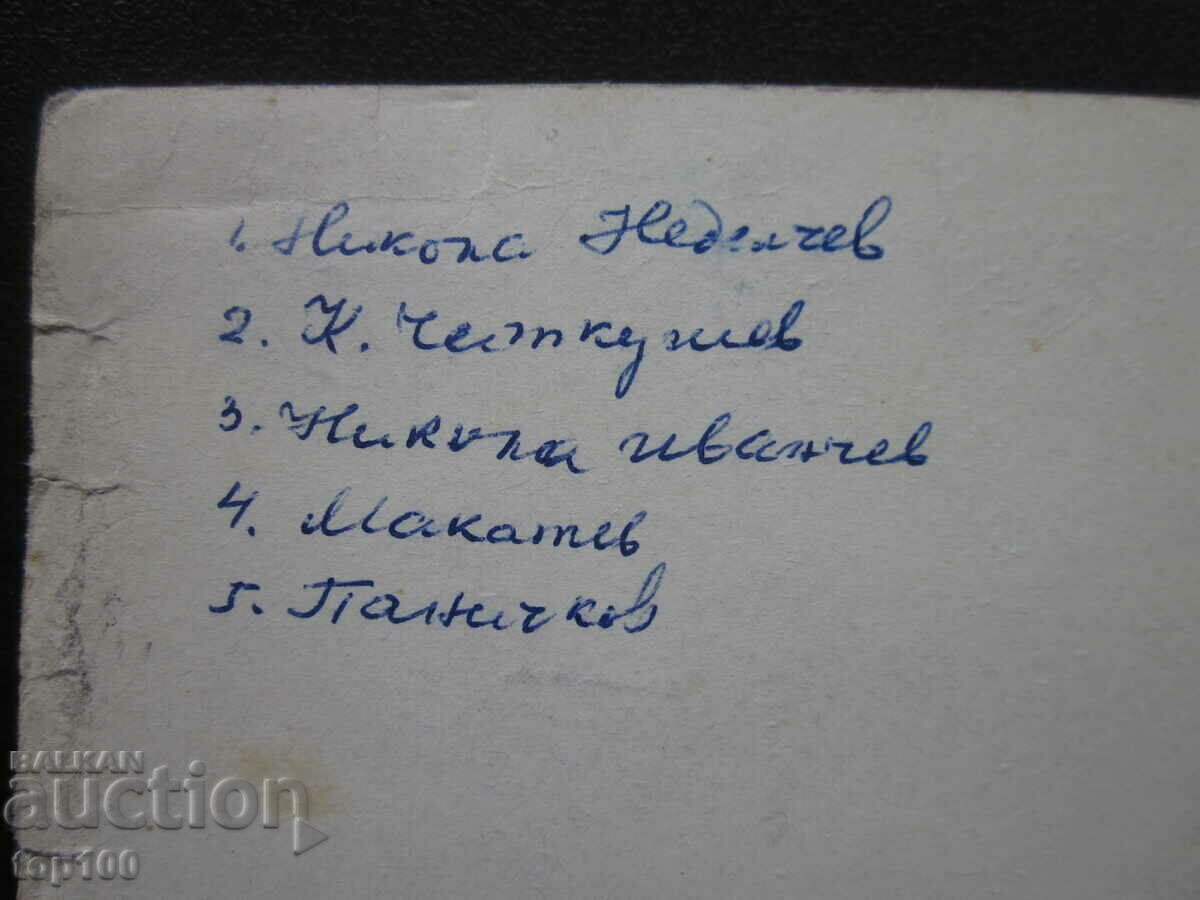 1. Никола Неделчев
2. К.
3. Никола Иванчев
4. Макатев
5. Паничков
BALKAN
auction
top100